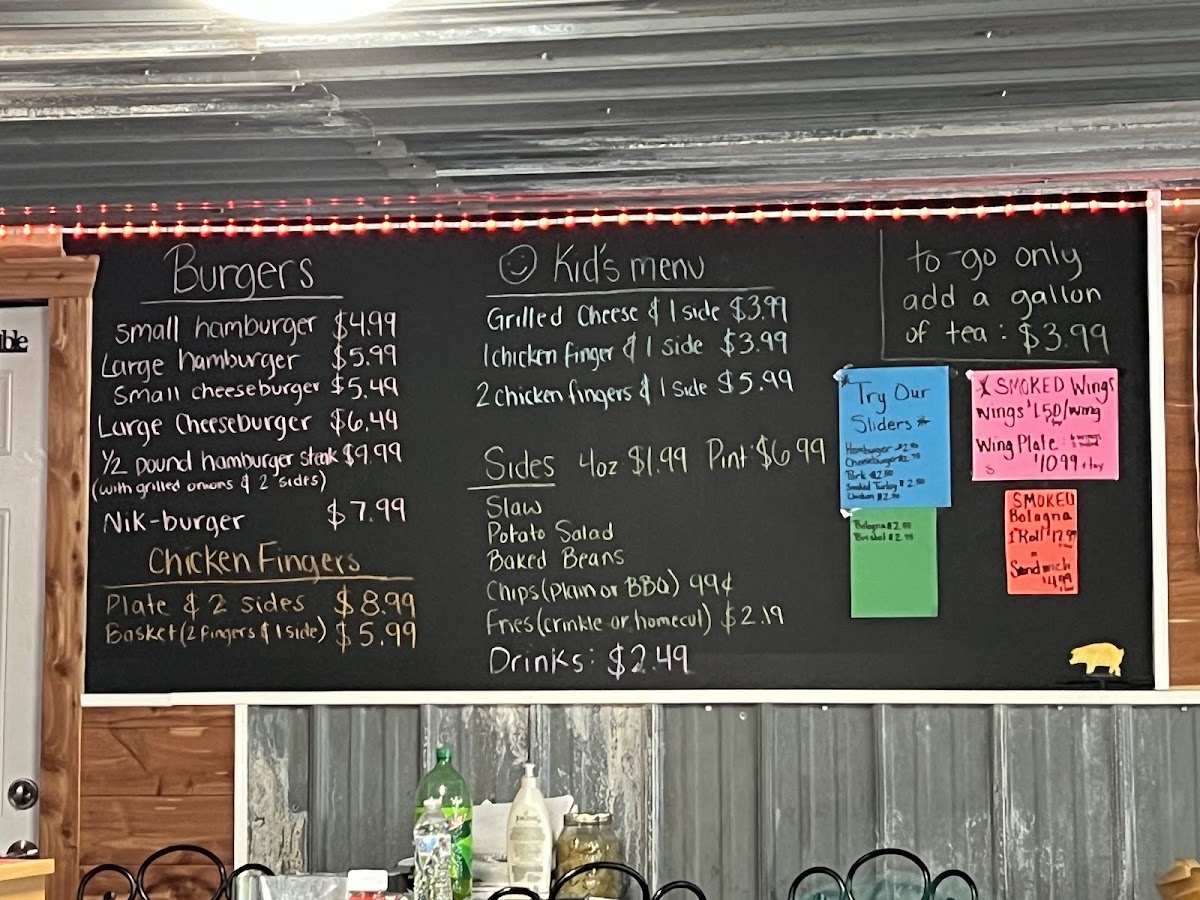 Burgers
small hamburger $4.99
Large hamburger $5.99
Small cheeseburger $5.49
Large Cheeseburger $6.49
1/2 pound hamburger steak $9.99
(with grilled onions & 2 sides)
Nik-burger $7.99
Chicken Fingers
Plate & 2 sides $8.99
Basket (2 fingers & 1 side) $5.99
Kid's menu
Grilled Cheese & 1 side $3.99
1 chicken finger & 1 side $3.99
2 chicken fingers & 1 side $5.99
Sides 4oz $1.99 Pint $6.99
Slaw
Potato Salad
Baked Beans
Chips (plain or BBQ) 99¢
Fries (crinkle or homecut) $2.19
Drinks: $2.49
to-go only
add a gallon
of tea: $3.99
Try Our
Sliders
Hamburger
Cheeseburger
Pork $2.50
Smoked Turkey $2.50
Chicken
Bologna $2.50
SMOKED Wings
Wings $1.50/wing
Wing Plate:
$10.99 + tax
SMOKED
Bologna
1 Roll
Sandwich
$4.99